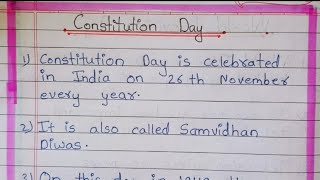 Constitution Day
1) Constitution Day is celebrated
in India on 26th November
every year.
2) It is also called Samvidhan
Diwas.
3) On this day in